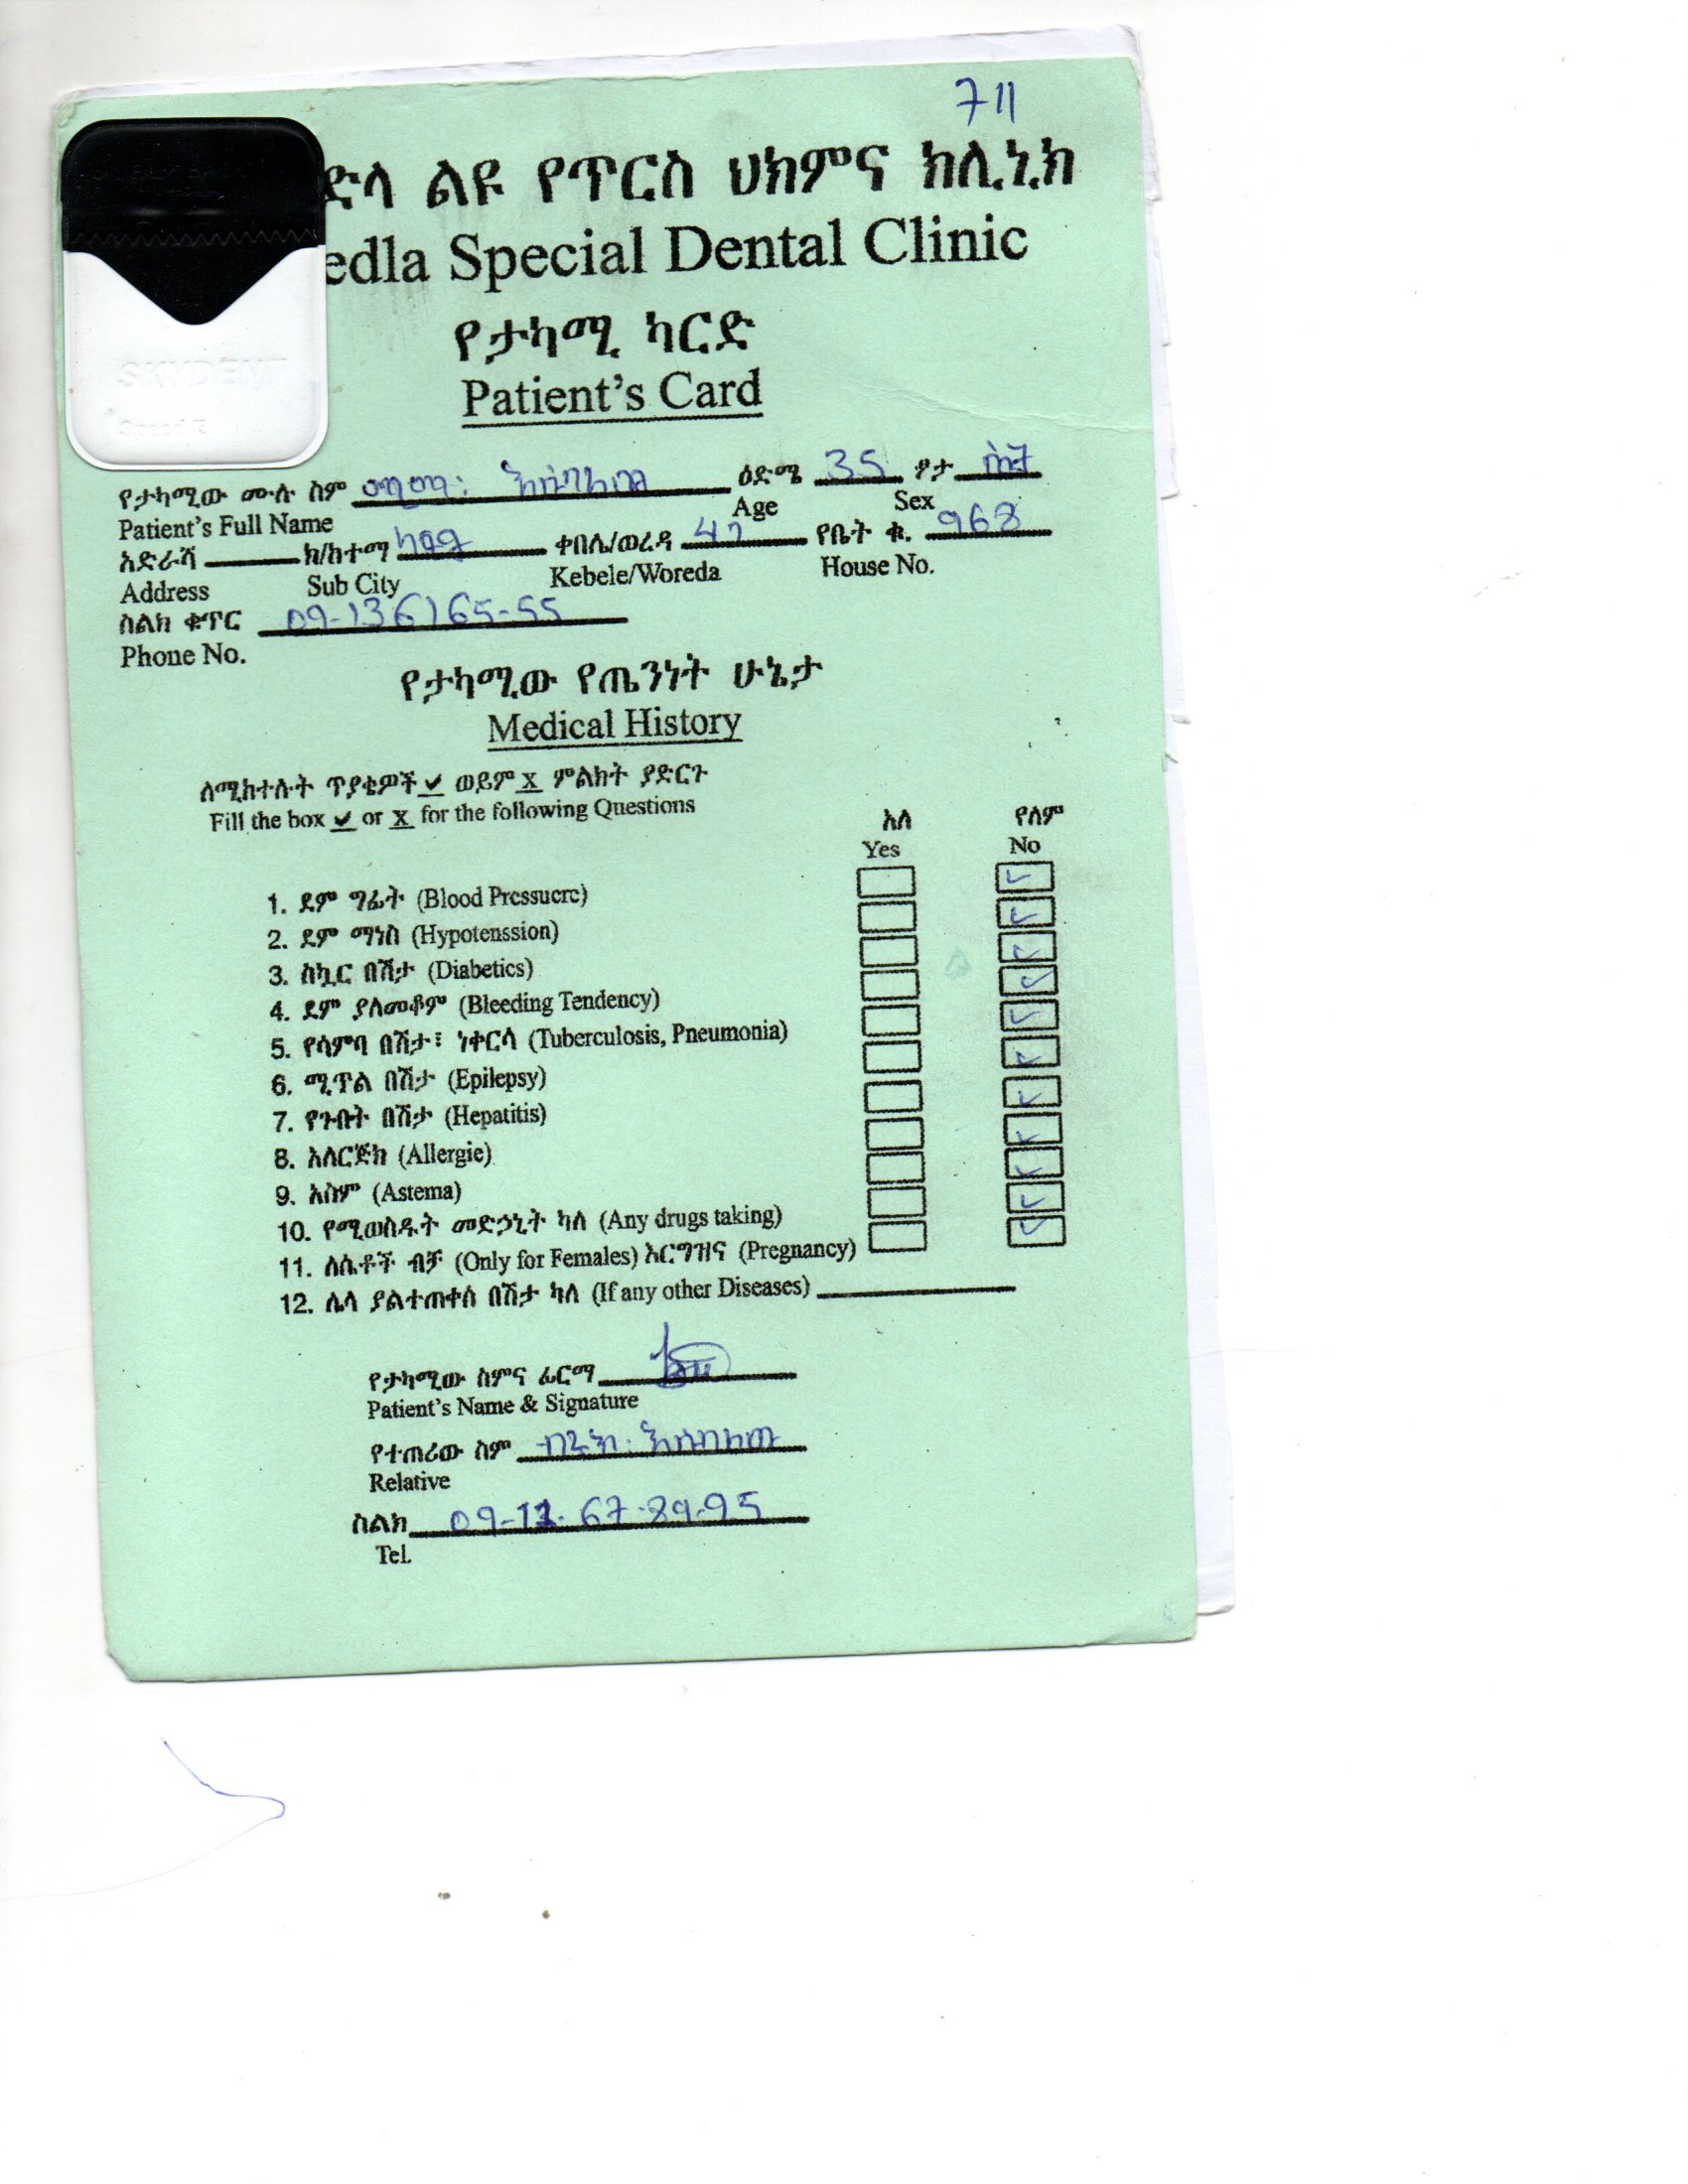 711
ድላ ልዩ የጥርስ ህክምና ክሊኒክ
edla Special Dental Clinic
የታካሚ ካርድ
Patient's Card
SKYDENT
የታካሚው ሙሉ ስም ዕድሜ 35 ፆታ ሴት
Patient's Full Name Age Sex
አድራሻ ክ/ከተማ ቀበሌ/ወረዳ የቤት ቁ. 968
Address Sub City Kebele/Woreda House No.
ስልክ ቁጥር 09-136165-55
Phone No.
የታካሚው የጤንነት ሁኔታ
Medical History
ለሚከተሉት ጥያቄዎች ✓ ወይም x ምልክት ያድርጉ
Fill the box ✓ or x for the following Questions
አለ የለም
Yes No
1. ደም ግፊት (Blood Pressucre) ✓
2. ደም ማነስ (Hypotenssion) ✓
3. ስኳር በሽታ (Diabetics) ✓
4. ደም ያለመቆም (Bleeding Tendency) ✓
5. የሳምባ በሽታ፣ ነቀርሳ (Tuberculosis, Pneumonia) ✓
6. ሚጥል በሽታ (Epilepsy) ✓
7. የጉበት በሽታ (Hepatitis) ✓
8. አለርጅክ (Allergie) ✓
9. አስም (Astema) ✓
10. የሚወስዱት መድኃኒት ካለ (Any drugs taking) ✓
11. ለሴቶች ብቻ (Only for Females) እርግዝና (Pregnancy) ✓
12. ሌላ ያልተጠቀሰ በሽታ ካለ (If any other Diseases)
የታካሚው ስምና ፊርማ
Patient's Name & Signature
የተጠሪው ስም
Relative
ስልክ 09-11-67-89-95
Tel.